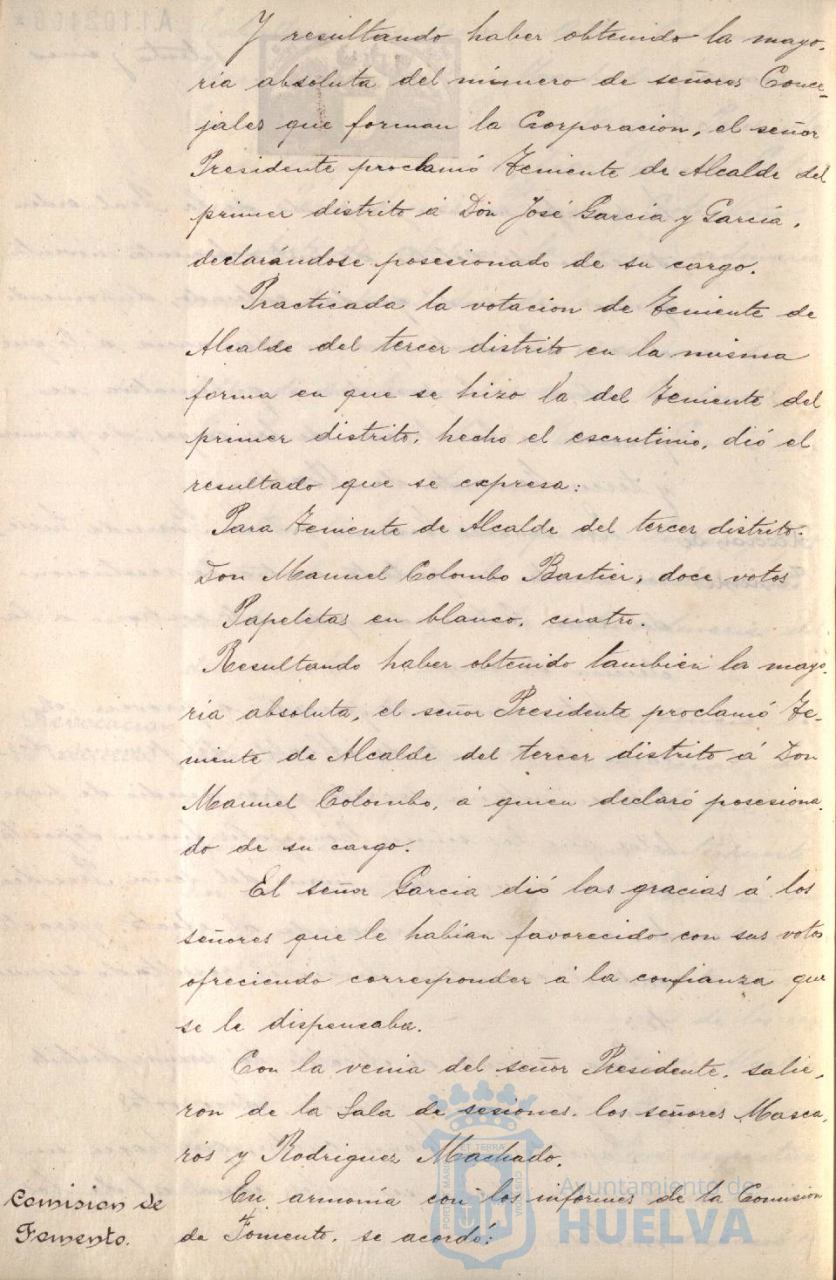 Y resultando haber obtenido la mayo-
ria absoluta del número de señores Conce-
jales que forman la Corporacion, el señor
Presidente proclamó Teniente de Alcalde del
primer distrito á Don José García y García,
declarándose posecionado de su cargo.
Practicada la votacion de Teniente de
Alcalde del tercer distrito en la misma
forma en que se hizo la del Teniente del
primer distrito, hecho el escrutinio, dió el
resultado que se expresa:
Para Teniente de Alcalde del tercer distrito.
Don Manuel Colombo Bastier, doce votos
Papeletas en blanco, cuatro.
Resultando haber obtenido tambien la mayo-
ria absoluta, el señor Presidente proclamó Te-
niente de Alcalde del tercer distrito á Don
Manuel Colombo, á quien declaró posesiona-
do de su cargo.
El señor Garcia dió las gracias á los
señores que le habian favorecido con sus votos
ofreciendo corresponder á la confianza que
se le dispensaba.
Con la venia del señor Presidente, salie-
ron de la Sala de sesiones, los señores Masca-
rós y Rodriguez Machado.
Comision de
Fomento.
En armonía con los informes de la Comision
de Fomento, se acordó:
Ayuntamiento de
HUELVA